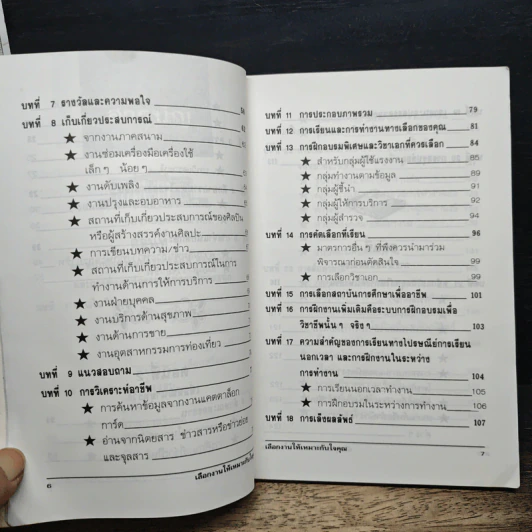 บทที่ 7 รางวัลและความพอใจ
บทที่ 8 เก็บเกี่ยวประสบการณ์
★ จากงานภาคสนาม
★ งานซ่อมเครื่องมือเครื่องใช้
เล็ก ๆ น้อย ๆ
★ งานดับเพลิง
★ งานปรุงและอบอาหาร
★ สถานที่เก็บเกี่ยวประสบการณ์ของศิลปิน
หรือผู้สร้างสรรค์งานศิลปะ
★ การเขียนบทความ/ข่าว
★ สถานที่เก็บเกี่ยวประสบการณ์ในการ
ทำงานด้านการให้การบริการ
★ งานฝ่ายบุคคล
★ งานบริการด้านสุขภาพ
★ งานด้านการขาย
★ งานอุตสาหกรรมการท่องเที่ยว
บทที่ 9 แนวสอบถาม
บทที่ 10 การวิเคราะห์อาชีพ
★ การค้นหาข้อมูลจากงานแคตตาล็อก
การ์ด
★ อ่านจากนิตยสาร ข่าวสารหรือข่าวย่อย
และจุลสาร
6 เลือกงานให้เหมาะกับใจ
บทที่ 11 การประกอบภาพรวม 79
บทที่ 12 การเรียนและการทำงานทางเลือกของคุณ 81
บทที่ 13 การฝึกอบรมพิเศษและวิชาเอกที่ควรเลือก 84
★ สำหรับกลุ่มผู้ใช้แรงงาน 85
★ กลุ่มทำงานตามข้อมูล 89
★ กลุ่มผู้ชี้นำ 91
★ กลุ่มผู้ให้การบริการ 92
★ กลุ่มผู้สำรวจ 94
บทที่ 14 การคัดเลือกที่เรียน 96
★ มาตรการอื่น ๆ ที่พึงควรนำมาร่วม
พิจารณาก่อนตัดสินใจ 99
★ การเลือกวิชาเอก 99
บทที่ 15 การเลือกสถาบันการศึกษาเพื่ออาชีพ 101
บทที่ 16 การฝึกงานเพิ่มเติมคือระบบการฝึกอบรมเพื่อ
วิชาชีพนั้น ๆ จริง ๆ 103
บทที่ 17 ความสำคัญของการเรียนทางไปรษณีย์การเรียน
นอกเวลา และการฝึกงานในระหว่าง
การทำงาน 104
★ การเรียนนอกเวลาทำงาน 105
★ การฝึกอบรมในระหว่างการทำงาน 106
บทที่ 18 การเล็งผลลัพธ์ 107
เลือกงานให้เหมาะกับใจคุณ 7